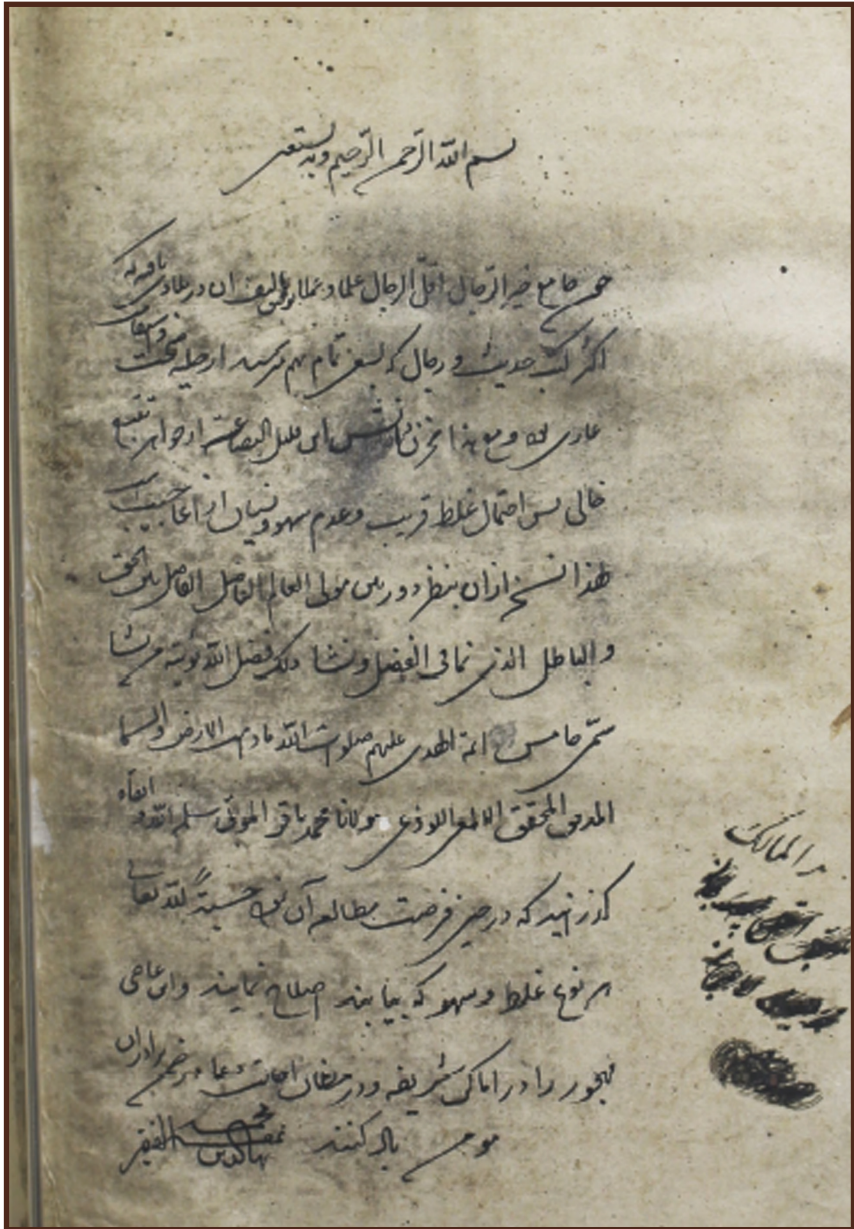 بسم الله الرّحمن الرّحیم وبه نستعین
چون جامع خیر الرّجال اقلّ الرجال علما و عملا تألیف آن در بلادی یافته که
اکثر کتب حدیث و رجال که بسعی تمام بهم رسیده از حلیه صحت
عاری بود و مع هذا این قلیل البضاعة از تتبع
خالی نیس احتمال غلط قریب و عدم سهو و نسیان از اعاجیب است
لهذا نسخ از آن بنظر دوربین مولی العالم الفاضل الفاصل بین الحق
و الباطل الذی نما فی الفضل و نشا ذلک فضل الله یؤتیه من یشا
سمّی خامس ائمة الهدی علیهم صلوات الله مادامت الارض و السما
المدقق المحقق الالمعی اللوذعی مولانا محمد باقر المولی سلمه الله و ابقاه
گذرانید که در حین فرصت مطالعه آن نموده حسبةً لله تعالی
هر نوع غلط و سهو که بیابند اصلاح نمایند و این عاصی
مهجور را در اماکن شریفه و در مظان اجابت دعا در ضمن برادران
مومن یاد کنند الفقیر بهاءالدین محمد
من الممالک